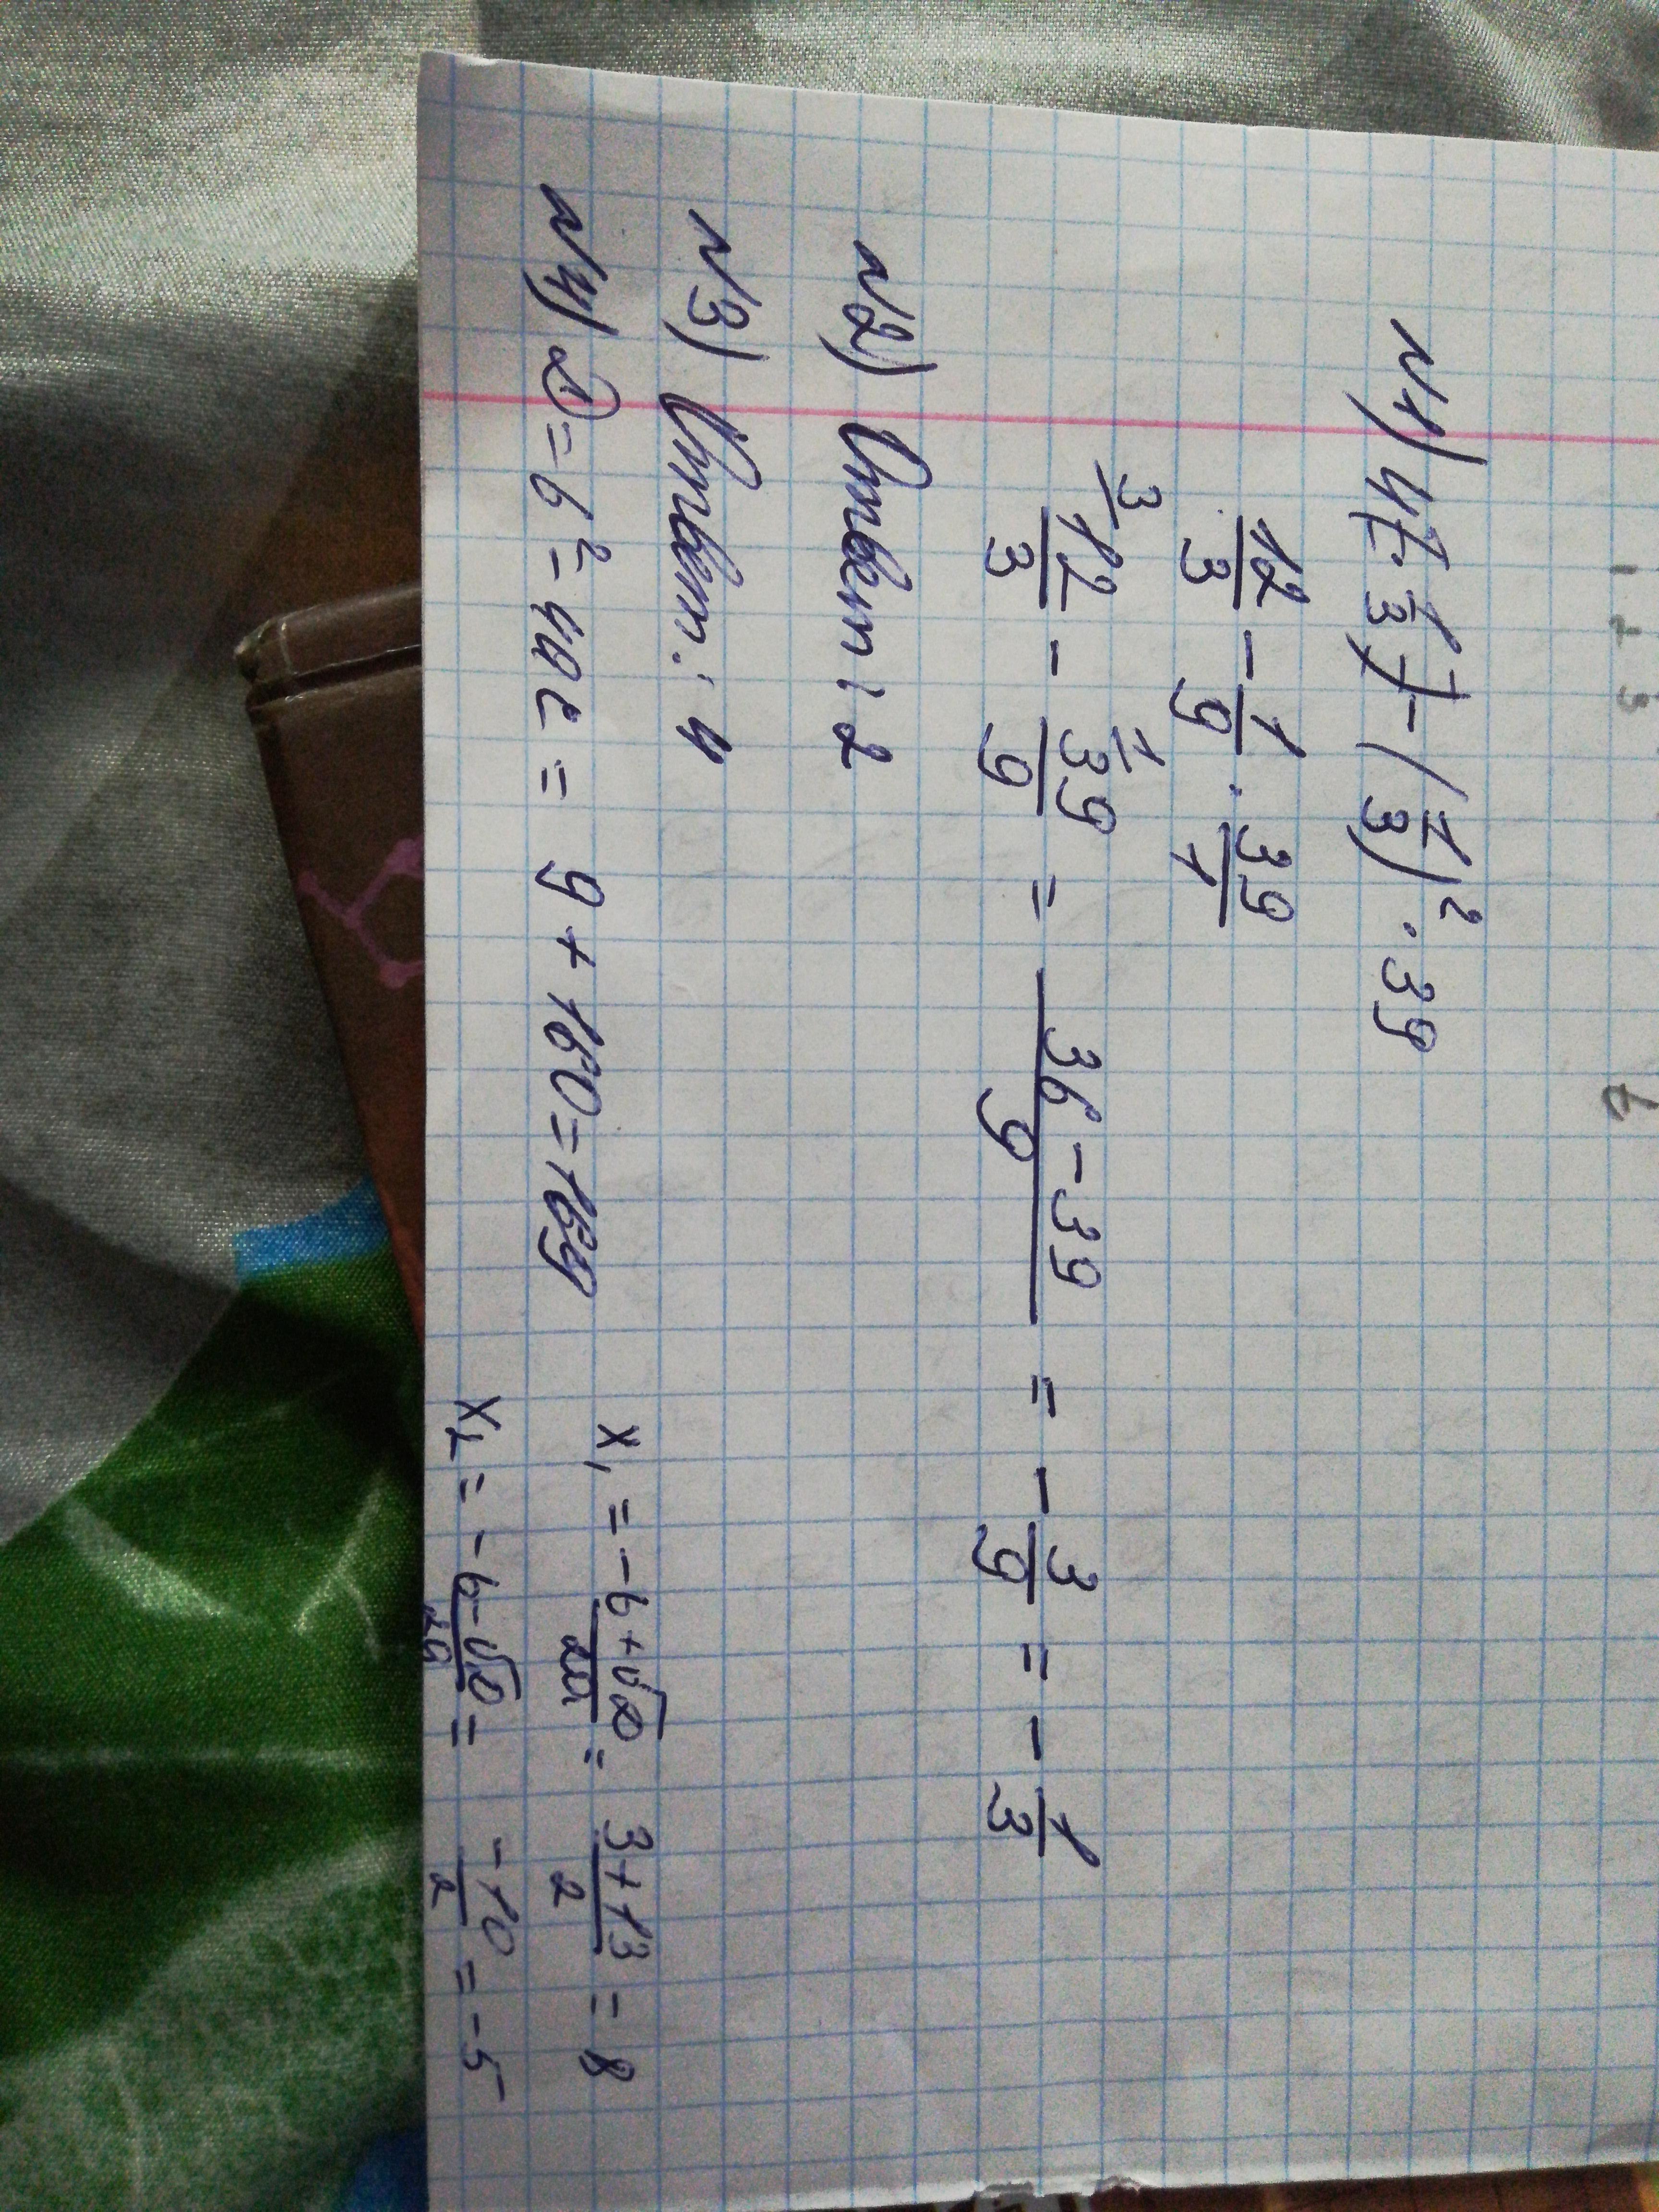 1 2 3
N1) 47 · 1/3) - (1/3)² · 39
12/3 - 1/9 · 39/1
3/ 12/3 - 1/ 39/9 = 36 - 39/9 = - 3/9 = - 1/3
N2) Ответ: 2
N3) Ответ: 4
N4) D = b² - 4ac = 9 + 160 = 169
x₁ = -b + √D/2a = 3 + 13/2 = 8
x₂ = -b - √D/2a = -10/2 = -5